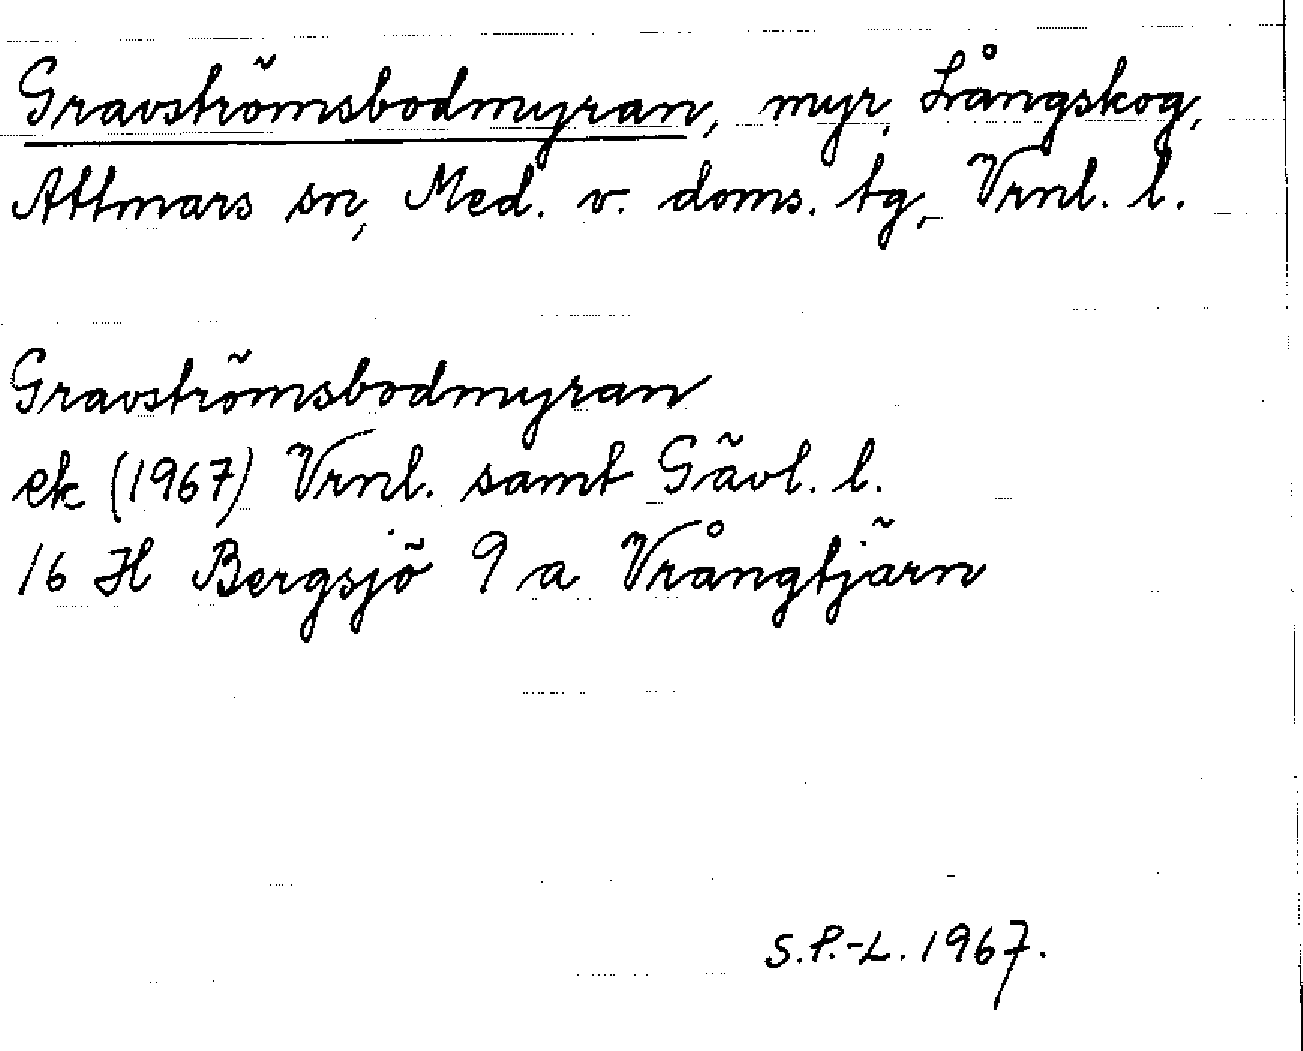 Gravströmsbodmyran, myr, Långskog,
Attmars sn, Med. v. doms. tg, Vrnl. l.
Gravströmsbodmyran
ek (1967) Vrnl. samt Gävl. l.
16 H Bergsjö 9 a Vrångtjärn
S.P.-L. 1967.